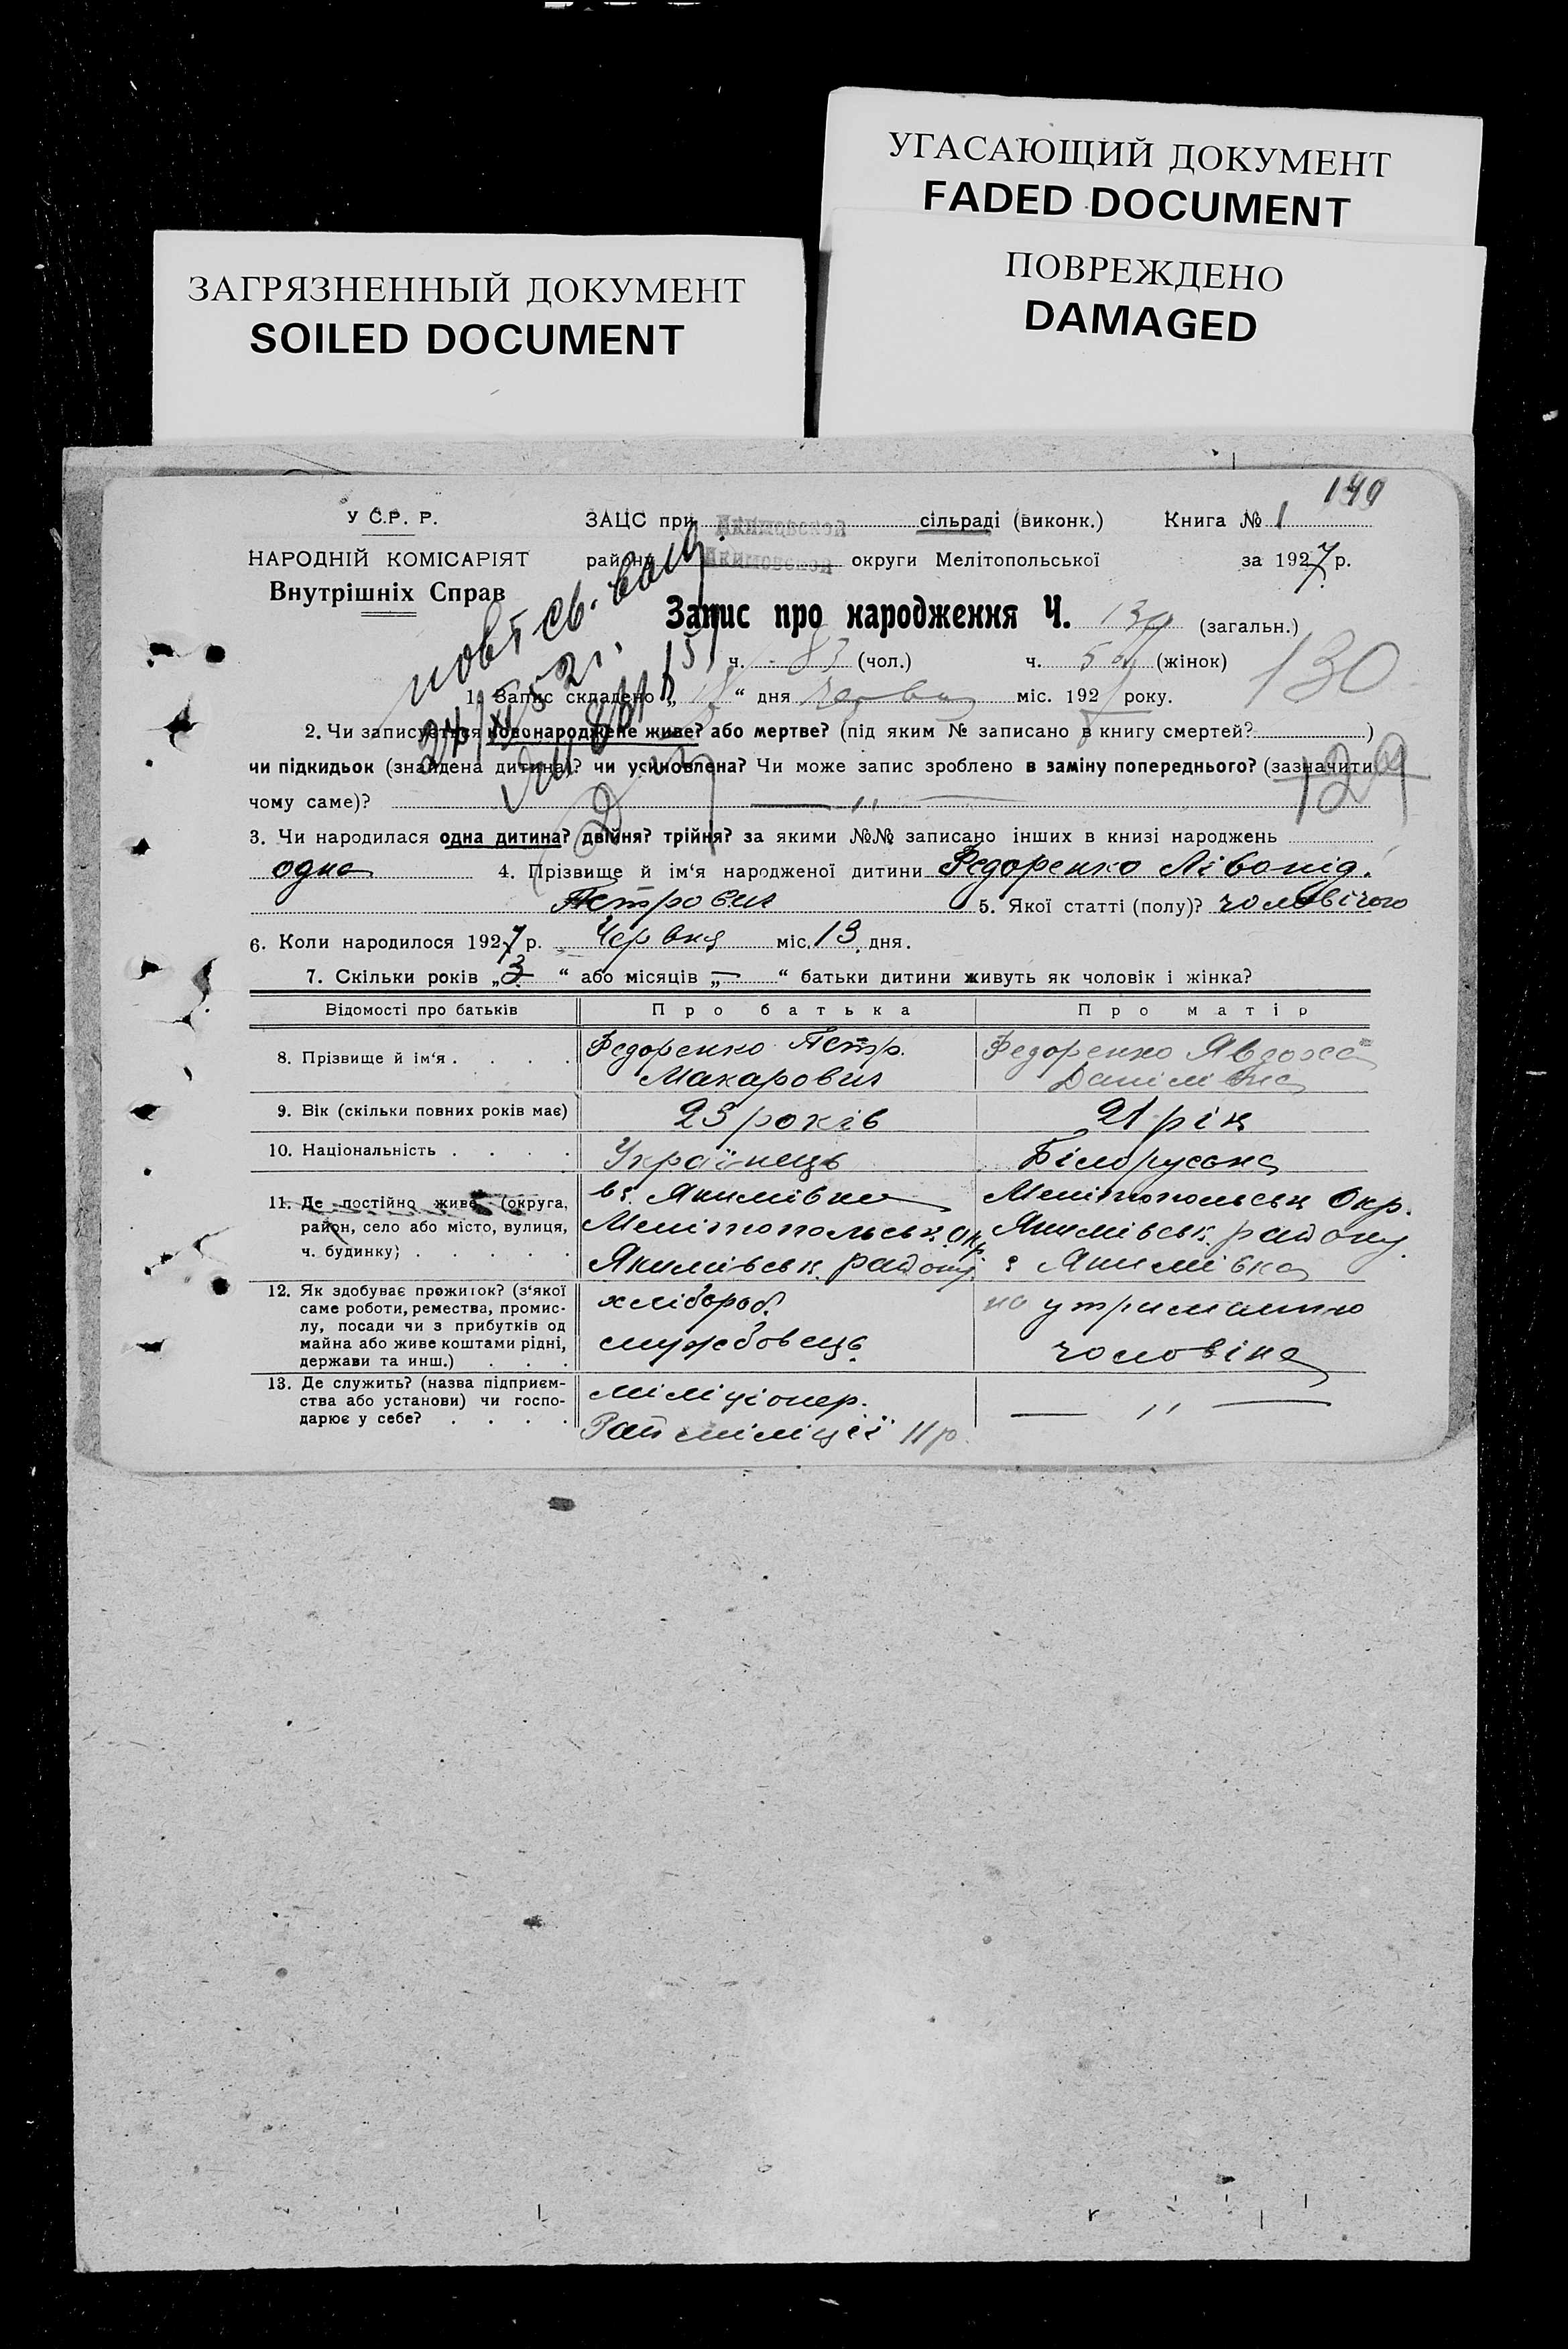 УГАСАЮЩИЙ ДОКУМЕНТ
FADED DOCUMENT
ПОВРЕЖДЕНО
DAMAGED
ЗАГРЯЗНЕННЫЙ ДОКУМЕНТ
SOILED DOCUMENT
У С.Р. Р.
НАРОДНІЙ КОМІСАРІЯТ
Внутрішніх Справ
ЗАЦС при сільраді (виконк.) Книга № 1
району округи Мелітопольської за 1927 р.
Запис про народження Ч. (загальн.)
ч. 83 (чол.) ч. (жінок)
130
1. Запис складено „ “ дня червня міс. 192 року.
2. Чи записується новонароджене живе? або мертве? (під яким № записано в книгу смертей? )
чи підкидьок (знайдена дитина)? чи усиновлена? Чи може запис зроблено в заміну попереднього? (зазначити
чому саме)? — „ —
129
3. Чи народилася одна дитина? двійня? трійня? за якими №№ записано інших в книзі народжень
одна 4. Прізвище й ім‘я народженої дитини Федоренко Лівонід.
Петрович 5. Якої статті (полу)? чоловічого
6. Коли народилося 1927 р. Червня міс. 13 дня.
7. Скільки років „3“ або місяців „—“ батьки дитини живуть як чоловік і жінка?
Відомості про батьків Про батька Про матір
8. Прізвище й ім‘я . . . . Федоренко Петр. Макарович Федоренко Явдоха Данілівна
9. Вік (скільки повних років має) 23 років 21 рік
10. Національність . . . . Українець Білоруська
11. Де постійно живе (округа, район, село або місто, вулиця, ч. будинку) . . . . .
в с. Якимівка
Мелітопольськ. Окр.
Якимівськ. району.
Мелітопольськ Окр.
Якимівськ. району
с Якимівка
12. Як здобуває прожиток? (з‘якої
саме роботи, ремества, промис-
лу, посади чи з прибутків од
майна або живе коштами рідні,
держави та инш.) . . .
хлібороб.
службовець.
на утриманню
чоловіка
13. Де служить? (назва підприєм-
ства або установи) чи госпо-
дарює у себе? . . . .
міліціонер.
Райміліції 11 р.
— „ —